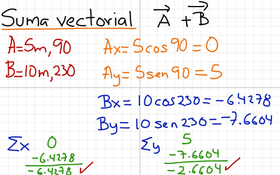 Suma vectorial A⃗ + B⃗
A=5m,90 Ax=5cos90=0
B=10m,230 Ay=5sen90=5
Bx=10cos230=-6.4278
By=10sen230=-7.6604
Σx 0 Σy 5
-6.4278 -7.6604
-6.4278 ✓ -2.6604 ✓